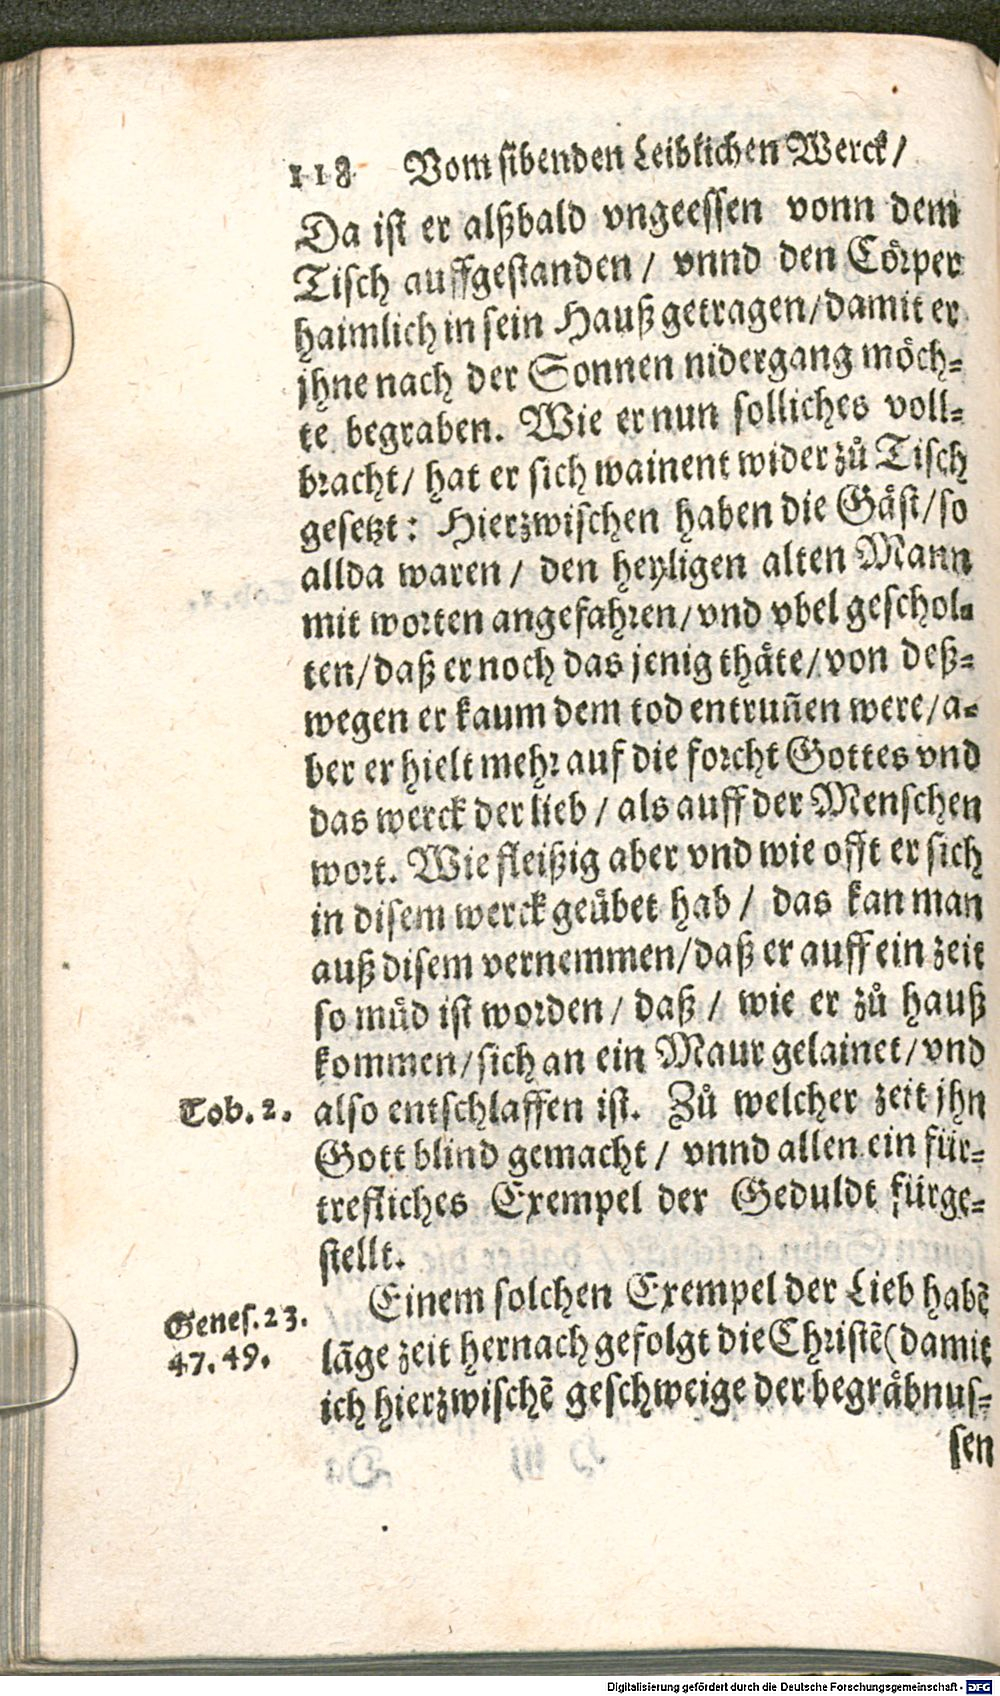 118 Vom sibenden Leiblichen Werck /
Da ist er alßbald vngeessen vonn dem
Tisch auffgestanden / vnnd den Cörper
haimlich in sein Hauß getragen / damit er
jhne nach der Sonnen nidergang möch-
te begraben. Wie er nun solliches voll-
bracht / hat er sich wainent wider zů Tisch
gesetzt: Hierzwischen haben die Gäst / so
allda waren / den heyligen alten Mann
mit worten angefahren / vnd vbel geschol-
ten / daß er noch das jenig thäte / von deß-
wegen er kaum dem tod entruñen were / a-
ber er hielt mehr auf die forcht Gottes vnd
das werck der lieb / als auff der Menschen
wort. Wie fleißig aber vnd wie offt er sich
in disem werck geübet hab / das kan man
auß disem vernemmen / daß er auff ein zeit
so müd ist worden / daß / wie er zů hauß
kommen / sich an ein Maur gelainet / vnd
Tob. 2. also entschlaffen ist. Zů welcher zeit jhn
Gott blind gemacht / vnnd allen ein für-
trefliches Exempel der Geduldt fürge-
stellt.
Einem solchen Exempel der Lieb habẽ
Genes. 23.
lãge zeit hernach gefolgt die Christẽ (damit
47. 49.
ich hierzwischẽ geschweige der begräbnus-
sen
Digitalisierung gefördert durch die Deutsche Forschungsgemeinschaft - DFG